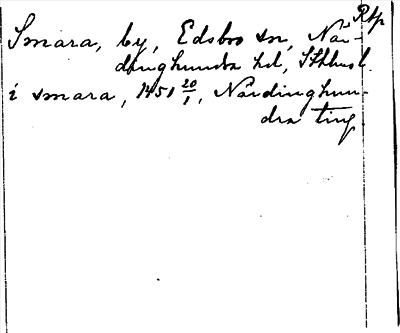 Rtp
Smara, by, Edsbro sn, När-
dinghundra hd, Sthlmsl.
i smara, 1451 20/1, Närdinghun-
dra ting.